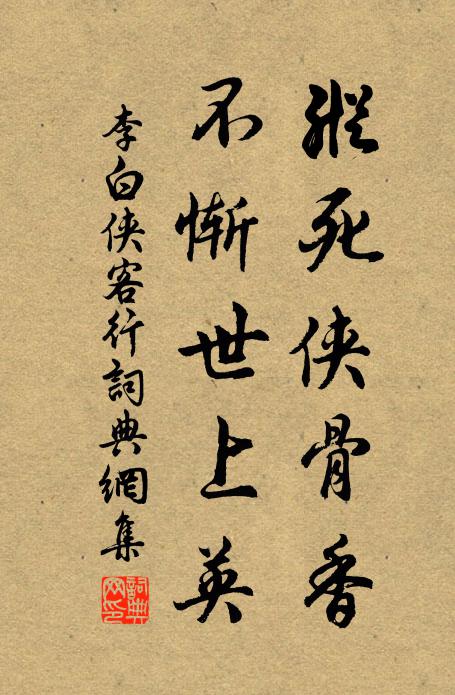 縱死俠骨香
不慚世上英
李白俠客行詞典網集
詞典網印